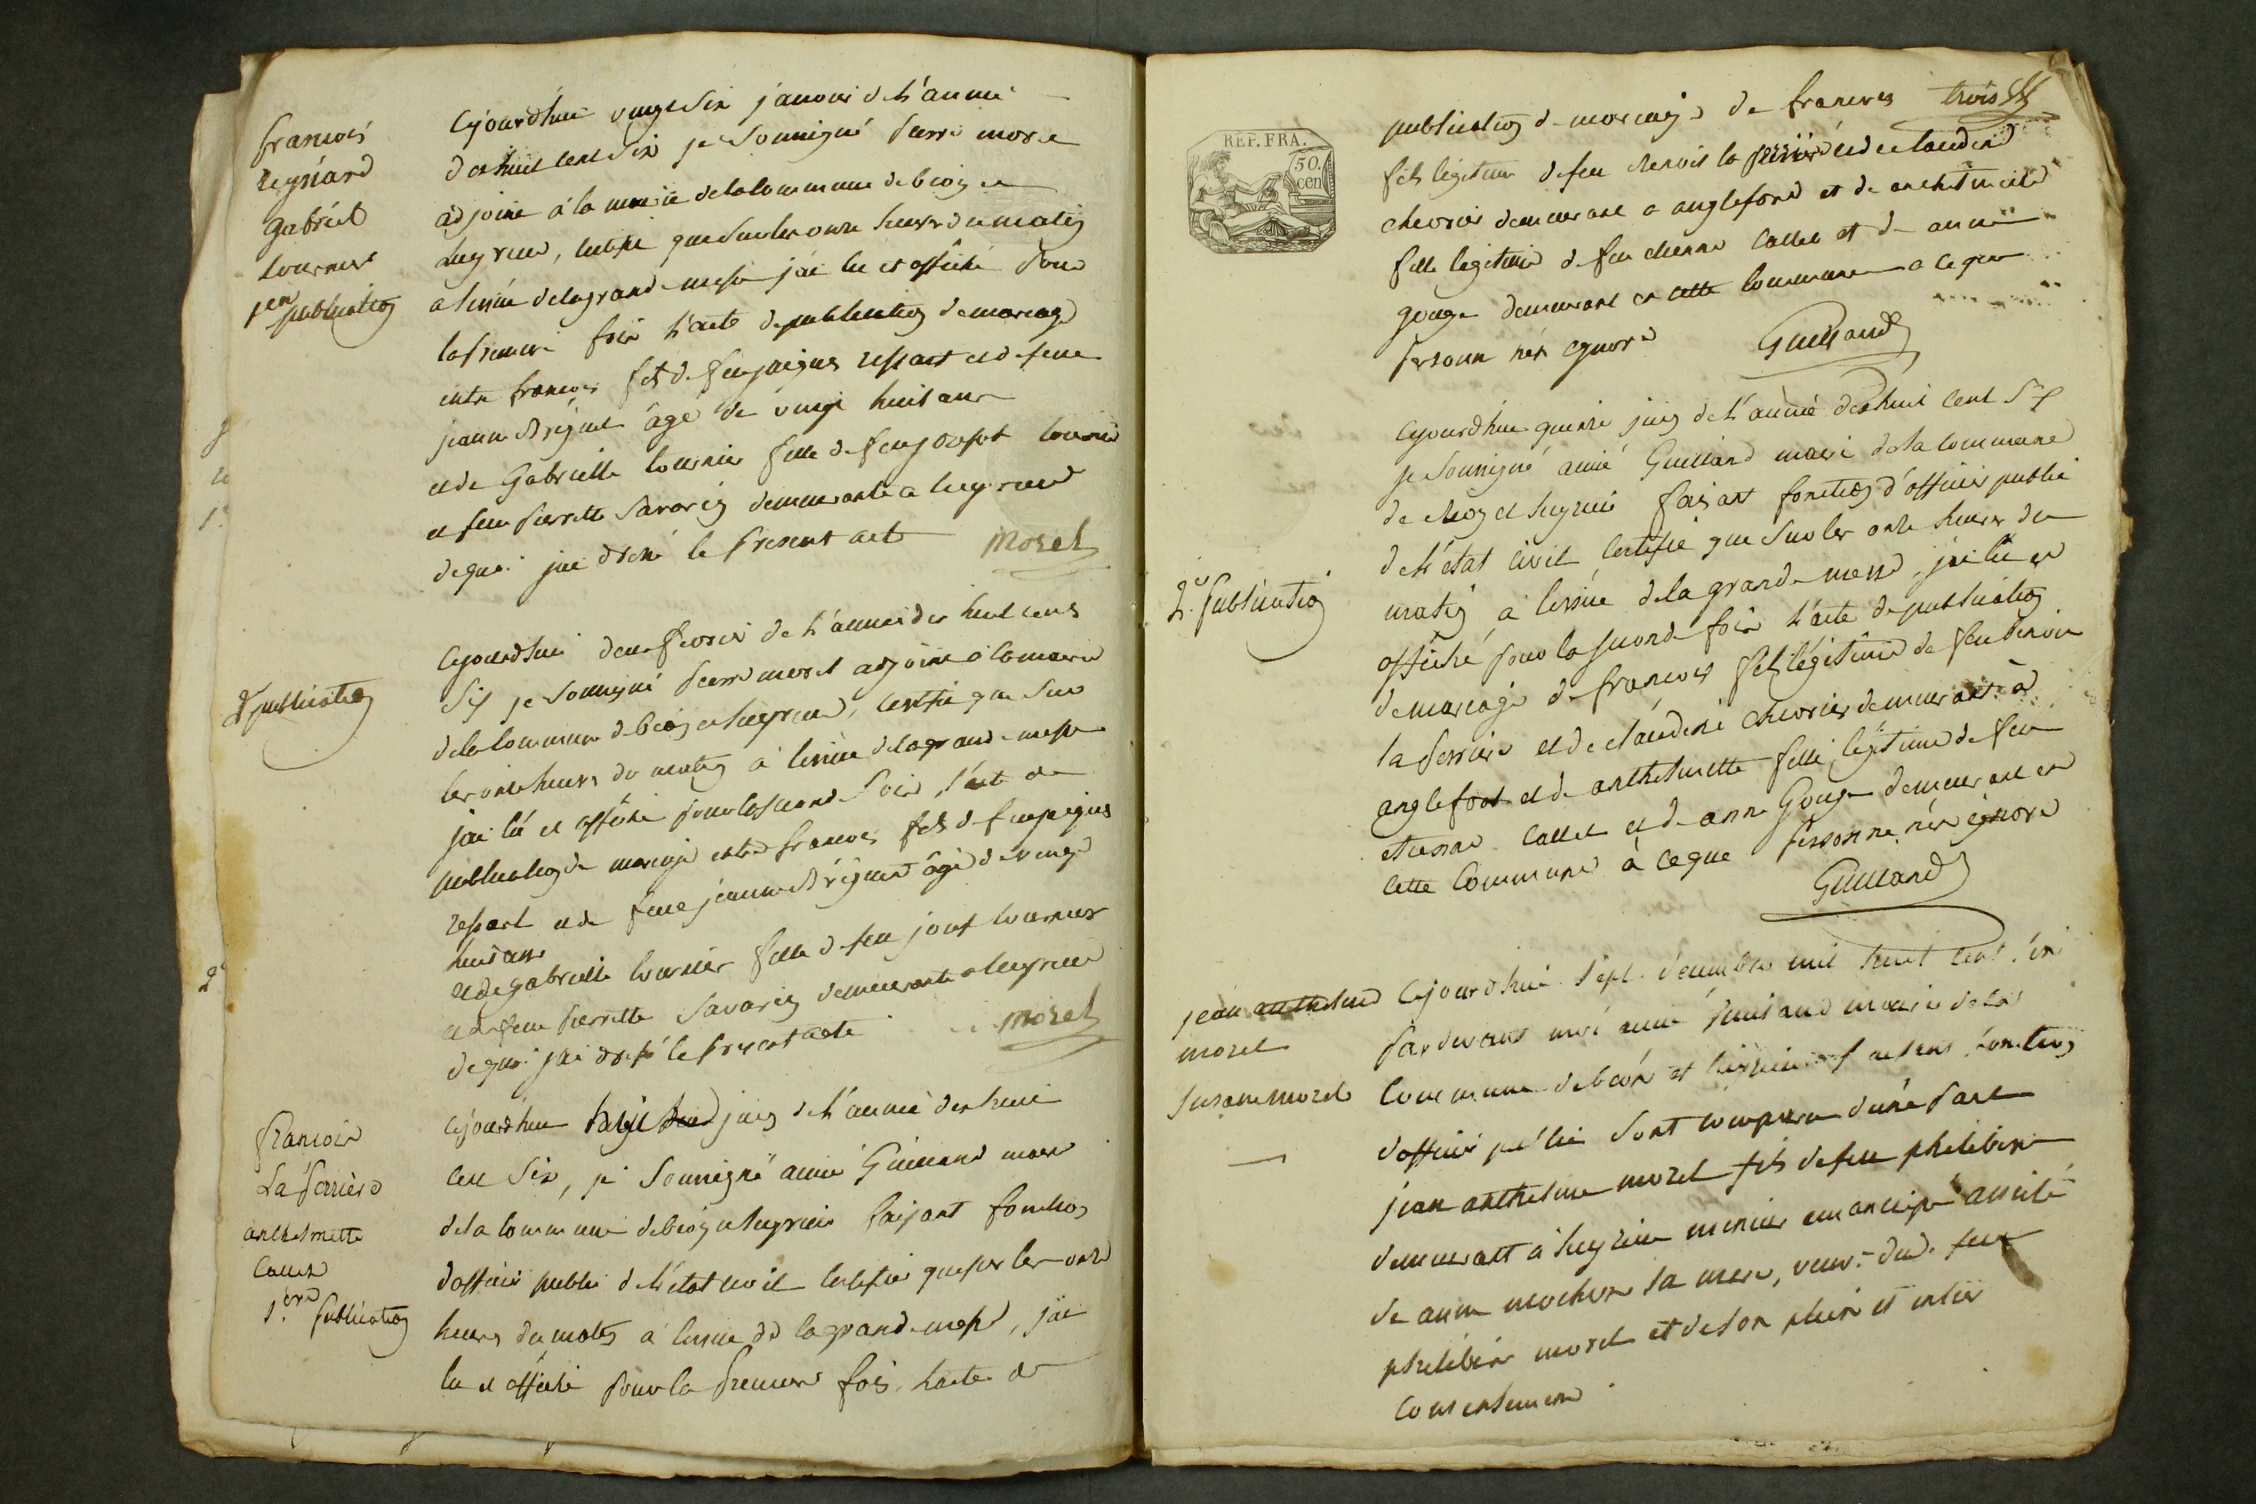 francois
regnard
gabriel
tournier
1ere publication
Cejourdhui vingt six janvier de l'année
dix huit cent six je soussigné pierre morel
adjoint à la mairie de la commune de beon et
Luyrieu, certifie que sur les onze heures du matin
a lissüe de la grande messe j'ai lu et affiché pour
la premiere fois l'acte de publication de mariage
entre francois fils de feu jaques et de feue
jeanne âgé de vingt huit ans
et de Gabrielle tournier fille de feu josept tournier
et feue pierrette Savarin demeurante a luyrieu
de quoi j'ai dressé le present acte Morel
2e publication
Cejourdhui deux fevrier de l'année dix huit cent
six je soussigné pierre morel adjoint à la mairie
de la commune de beon et luyrieu, certifie que sur
les onze heures du matin à lissüe de la grande messe
j'ai lü et affiché pour la seconde fois, l'acte de
publication de mariage entre francois fils de feu jaques
et de feue jeanne âgé de vingt
huit ans
et de gabrielle tournier fille de feu josept tournier
et de feue pierrette Savarin demeurante a luyrieu
de quoi j'ai dressé le present acte Morel
francois
La perrière
anthelmette
Callet
1.ere publication
Cejourdhui juin de l'année dix huit
cent six, je soussigné aimé Guilland maire
de la commune de beon et luyrieu faisant fonction
d'officier public de l'état civil certifie que sur les onze
heures du matin à lissue de la grande messe, j'ai
lu et affiché pour la premiere fois l'acte de
REP. FRA.
50.
cen
trois
publication de mariage de francois
fils legitime de feu benoit la perrière et de claudine
chevrier demeurant a anglefond et de anthelmette
fille legitime de feu etienne Callet et de anne
gouge demeurant en cette commune a ce que
personne n'en ignore Guilland
2.e publication
Cejourdhui quinze juin de l'année dixhuit cent six
je soussigné aimé Guilland maire de la commune
de beon et luyrieu faisant fonction d'officier public
de l'état civil certifie que sur les onze heures du
matin à lissüe de la grande messe, j'ai lü et
affiché pour la seconde fois l'acte de publication
de mariage de francois fils légitime de feu benoit
la perrière et de claudine chevrier demeurant à
anglefort et de anthelmette fille légitime de feu
etienne Callet et de anne Gouge demeurant en
cette Commune à ce que personne n'en ignore
Guilland
jean anthelme
morel
susane morel
Cejourdhui sept decembre mil huit cent six
par devant moi aimé Guilland maire de la
commune de beon et luyrieu faisant fonction
d'officier public sont comparu d'une part
jean anthelme morel fils de feu philibert
demeurant à luyrieu mineur emancipé assisté
de anne mochon sa mere, veuve dud. feu
philibert morel et de son plein et entier
consentement